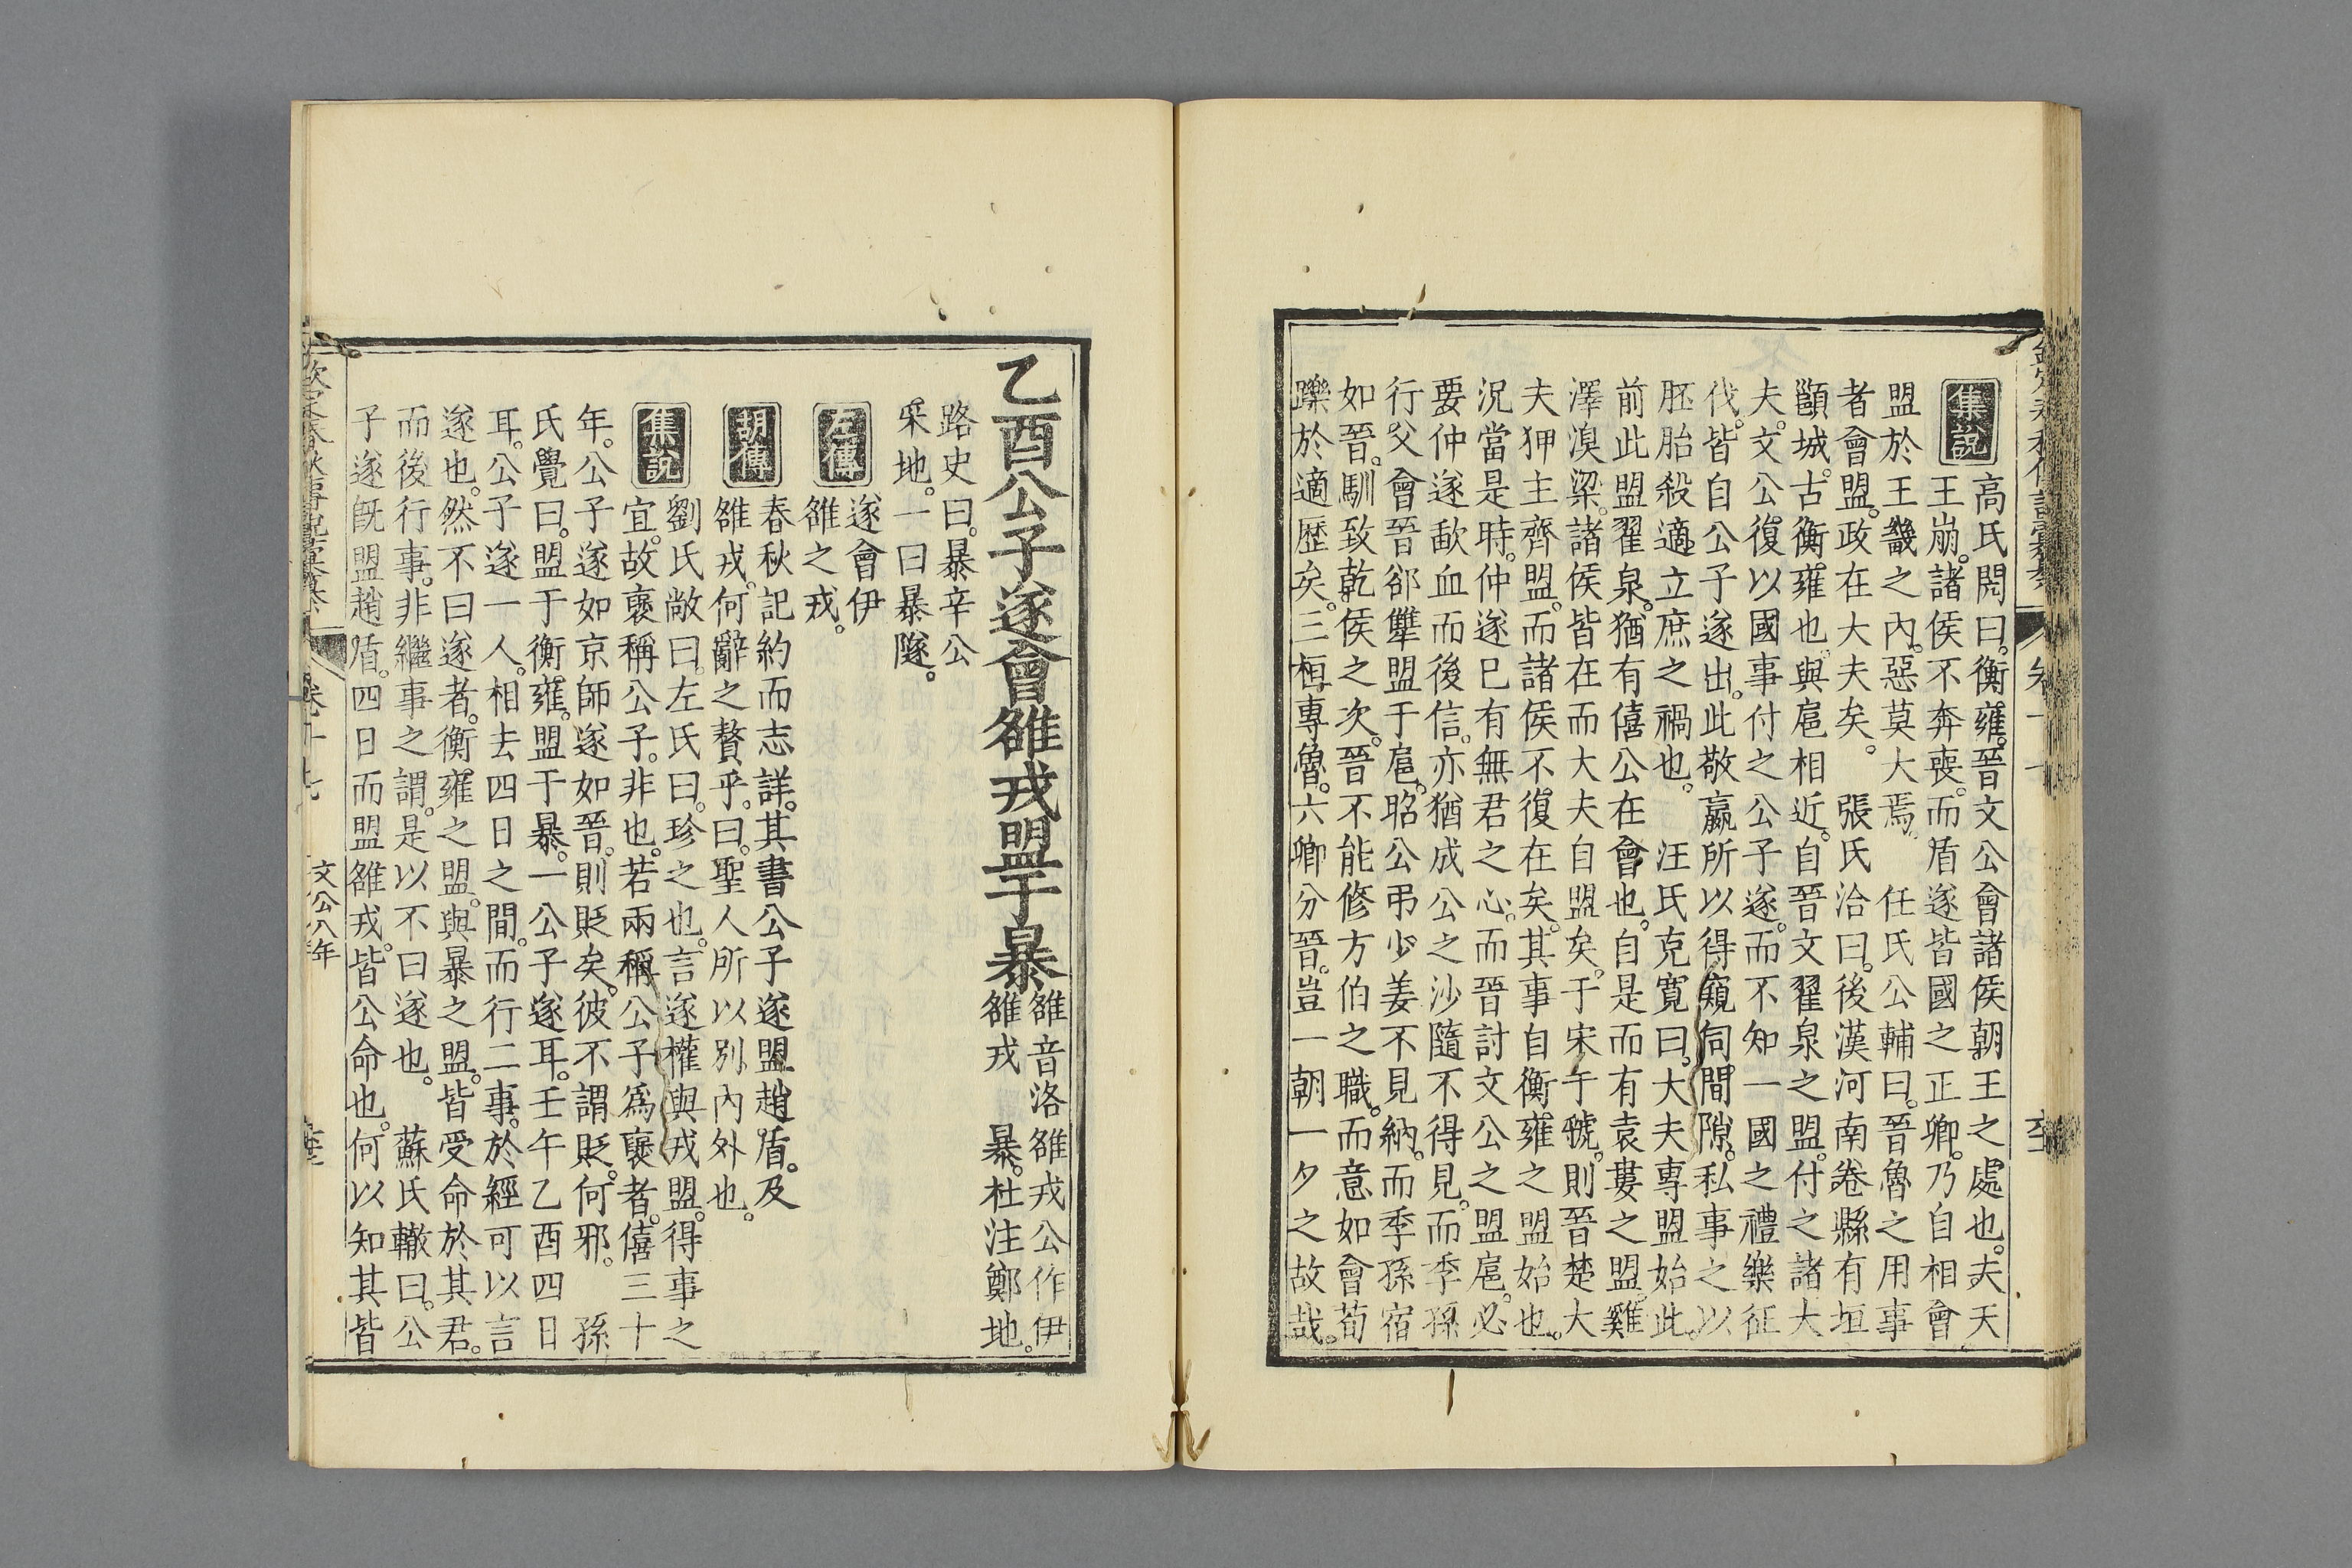 集說
高氏閌曰。衡雍。晉文公會諸侯朝王之處也。夫天
王崩。諸侯不奔喪。而盾遂皆國之正卿。乃自相會
盟於王畿之內。惡莫大焉。 任氏公輔曰。晉魯之用事
者會盟。政在大夫矣。 張氏洽曰。後漢河南卷縣有垣
䨥城。古衡雍也。與扈相近。自晉文翟泉之盟。付之諸大
夫。文公復以國事付之公子遂。而不知一國之禮樂征
伐。皆自公子遂出。此敬嬴所以得窺伺間隙。私事之以
胚胎殺適立庶之禍也。 汪氏克寬曰。大夫專盟始此。
前此盟翟泉。猶有僖公在會也。自是而有袁婁之盟。雞
澤溴梁。諸侯皆在而大夫自盟矣。于宋于虢。則晉楚大
夫狎主齊盟。而諸侯不復在矣。其事自衡雍之盟始也。
況當是時。仲遂已有無君之心。而晉討文公之盟扈。必
要仲遂歃血而後信。亦猶成公之沙隨不得見。而季孫
行父會晉郤犨盟于扈。昭公弔少姜不見納。而季孫宿
如晉。馴致乾侯之次。晉不能修方伯之職。而意如會荀
躒於適歷矣。三桓專魯。六卿分晉。豈一朝一夕之故哉。
乙酉公子遂會雒戎盟于暴
雒音洛雒戎公作伊
雒戎 暴。杜注鄭地。
路史曰。暴辛公
采地。一曰暴隧。
左傳
遂會伊
雒之戎。
胡傳
春秋記約而志詳。其書公子遂盟趙盾。及
雒戎。何辭之贅乎。曰。聖人所以別內外也。
集說
劉氏敞曰。左氏曰。珍之也。言遂權與戎盟。得事之
宜。故褒稱公子。非也。若兩稱公子爲褒者。僖三十
年。公子遂如京師遂如晉。則貶矣。彼不謂貶。何邪。 孫
氏覺曰。盟于衡雍。盟于暴。一公子遂耳。壬午乙酉四日
耳。公子遂一人。相去四日之間。而行二事。於經可以言
遂也。然不曰遂者。衡雍之盟。與暴之盟。皆受命於其君。
而後行事。非繼事之謂。是以不曰遂也。 蘇氏轍曰。公
子遂既盟趙盾。四日而盟雒戎。皆公命也。何以知其皆
卷十七 文公八年